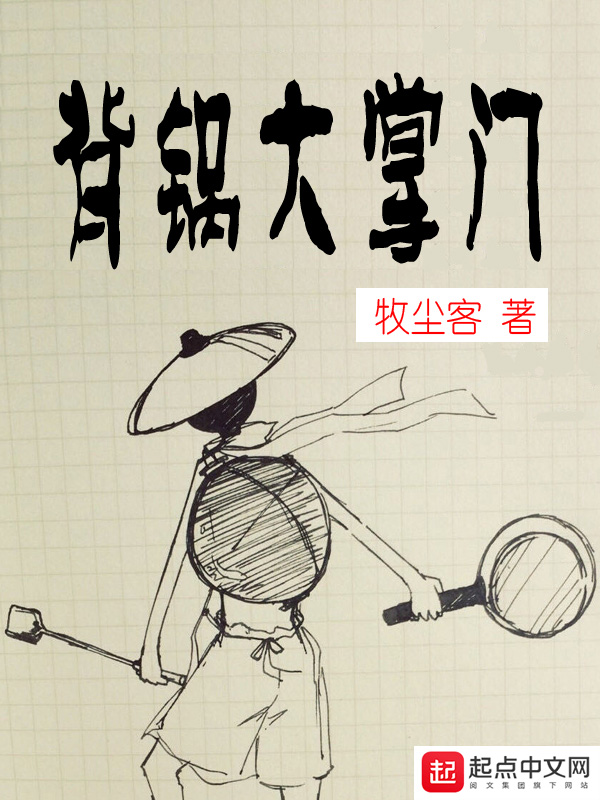 背锅大掌门
牧尘客 著
起 起点中文网
阅文集团旗下网站